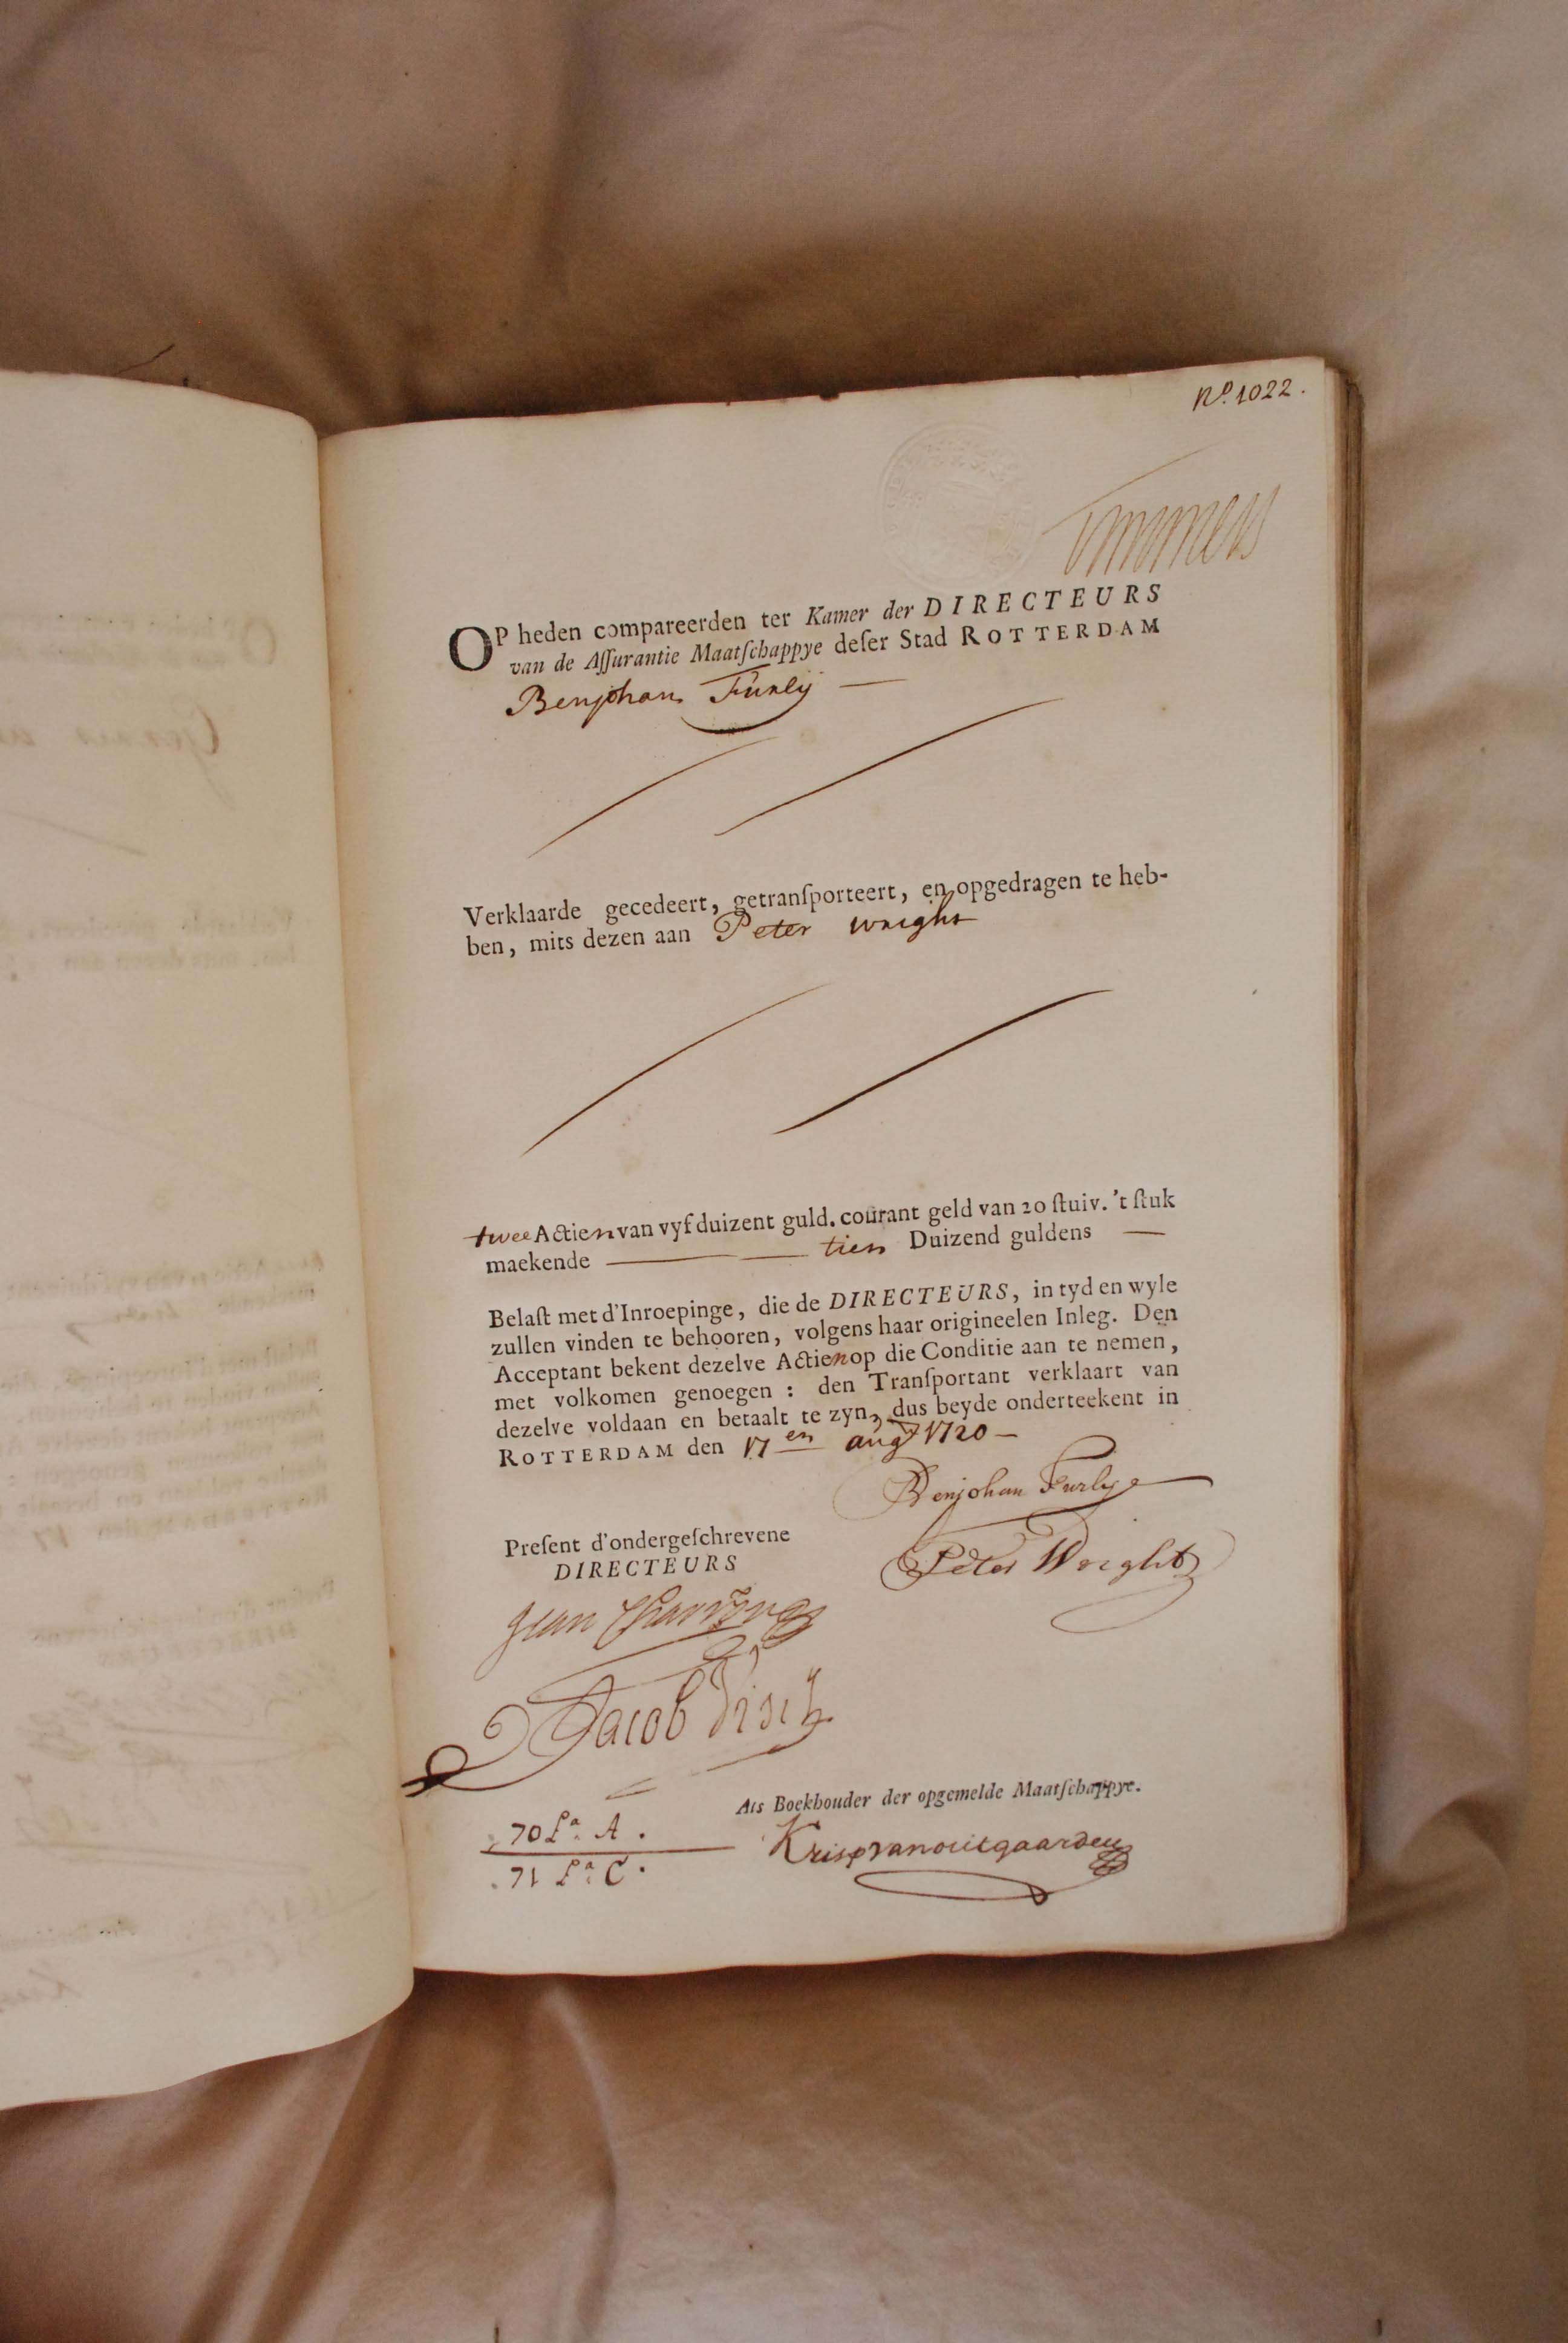 No. 1022.
OP heden compareerden ter Kamer der DIRECTEURS
van de Aſſurantie Maatſchappye deſer Stad ROTTERDAM
Benjohan Furly
Verklaarde gecedeert, getranſporteert, en opgedragen te heb-
ben, mits dezen aan Peter Wright
twee Actien van vyf duizent guld. courant geld van 20 ſtuiv. 't ſtuk
maekende tien Duizend guldens
Belaſt met d'Inroepinge, die de DIRECTEURS, in tyd en wyle
zullen vinden te behooren, volgens haar origineelen Inleg. Den
Acceptant bekent dezelve Actien op die Conditie aan te nemen,
met volkomen genoegen: den Tranſportant verklaart van
dezelve voldaan en betaalt te zyn, dus beyde onderteekent in
ROTTERDAM den 17en aug 1720
Benjohan Furly
Preſent d'ondergeſchrevene
DIRECTEURS
Peter Wright
Jean
Jacob
Als Boekhouder der opgemelde Maatſchappye.
70 La. A.
71 La. C.
Krisp van outgaarden